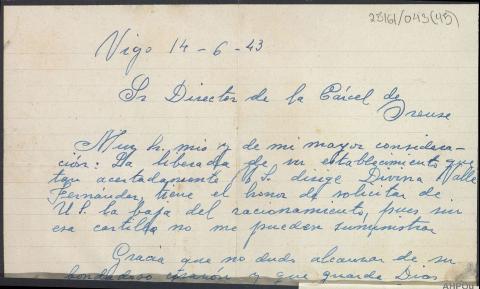 25161/043(45)
Vigo 14-6-43
Sr Director de la Cárcel de
Orense
Muy Sr. mio y de mi mayor considera-
ción: La liberada de su establecimiento que
tan acertadamente U.S. dirige Divina Valle
Fernández, tiene el honor de solicitar de
U.S. la baja del racionamiento, pues sin
esa cartilla no me pueden suministrar
Gracia que no dudo alcanzar de su
bondadoso corazón y que guarda Dios
AHPOu